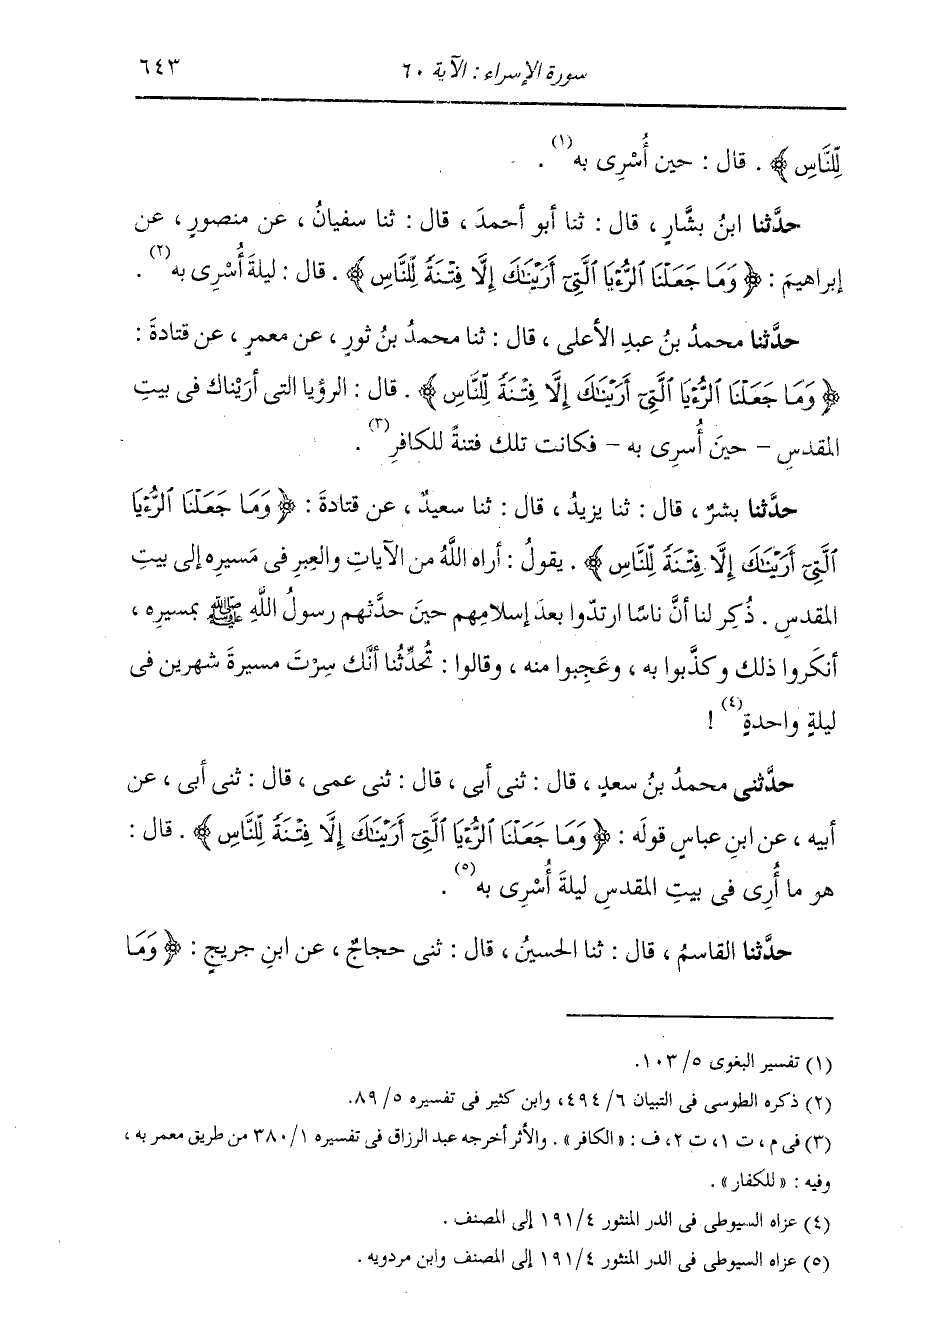 سورة الإسراء : الآية ٦٠
٦٤٣
لِّلنَّاسِ ﴾ . قال : حين أُسْرِى به(١) .
حدَّثنا ابنُ بشَّارٍ ، قال : ثنا أبو أحمدَ ، قال : ثنا سفيانُ ، عن منصورٍ ، عن
إبراهيمَ : ﴿ وَمَا جَعَلْنَا ٱلرُّءْيَا ٱلَّتِىٓ أَرَيْنَٰكَ إِلَّا فِتْنَةً لِّلنَّاسِ ﴾ . قال : ليلةَ أُسْرِى به(٢) .
حدَّثنا محمدُ بنُ عبدِ الأعلى ، قال : ثنا محمدُ بنُ ثورٍ ، عن معمرٍ ، عن قتادةَ :
﴿ وَمَا جَعَلْنَا ٱلرُّءْيَا ٱلَّتِىٓ أَرَيْنَٰكَ إِلَّا فِتْنَةً لِّلنَّاسِ ﴾ . قال : الرؤيا التى أرَيْناك فى بيتِ
المقدسِ - حينَ أُسرِى به - فكانت تلك فتنةً للكافرِ(٣) .
حدَّثنا بشرٌ ، قال : ثنا يزيدُ ، قال : ثنا سعيدٌ ، عن قتادةَ : ﴿ وَمَا جَعَلْنَا ٱلرُّءْيَا
ٱلَّتِىٓ أَرَيْنَٰكَ إِلَّا فِتْنَةً لِّلنَّاسِ ﴾ . يقولُ : أراه اللَّهُ من الآياتِ والعِبرِ فى مَسيرِه إلى بيتِ
المقدسِ . ذُكِر لنا أنَّ ناسًا ارتدّوا بعدَ إسلامِهم حينَ حدَّثهم رسولُ اللَّهِ ﷺ بمسيرِه ،
أنكَروا ذلك وكذَّبوا به ، وعَجِبوا منه ، وقالوا : تُحدِّثُنا أنَّك سِرْتَ مسيرةَ شهرين فى
ليلةٍ واحدةٍ(٤) !
حدَّثنى محمدُ بنُ سعدٍ ، قال : ثنى أبى ، قال : ثنى عمى ، قال : ثنى أبى ، عن
أبيه ، عن ابنِ عباسٍ قولَه : ﴿ وَمَا جَعَلْنَا ٱلرُّءْيَا ٱلَّتِىٓ أَرَيْنَٰكَ إِلَّا فِتْنَةً لِّلنَّاسِ ﴾ . قال :
هو ما أُرِى فى بيتِ المقدسِ ليلةَ أُسْرِى به(٥) .
حدَّثنا القاسمُ ، قال : ثنا الحسينُ ، قال : ثنى حجاجٌ ، عن ابنِ جريجٍ : ﴿ وَمَا
(١) تفسير البغوى ٥/ ١٠٣.
(٢) ذكره الطوسى فى التبيان ٦/ ٤٩٤، وابن كثير فى تفسيره ٥/ ٨٩.
(٣) فى م ، ت ١، ت ٢، ف : « الكافر » . والأثر أخرجه عبد الرزاق فى تفسيره ١/ ٣٨٠ من طريق معمر به ،
وفيه : « للكفار » .
(٤) عزاه السيوطى فى الدر المنثور ٤/ ١٩١ إلى المصنف .
(٥) عزاه السيوطى فى الدر المنثور ٤/ ١٩١ إلى المصنف وابن مردويه .